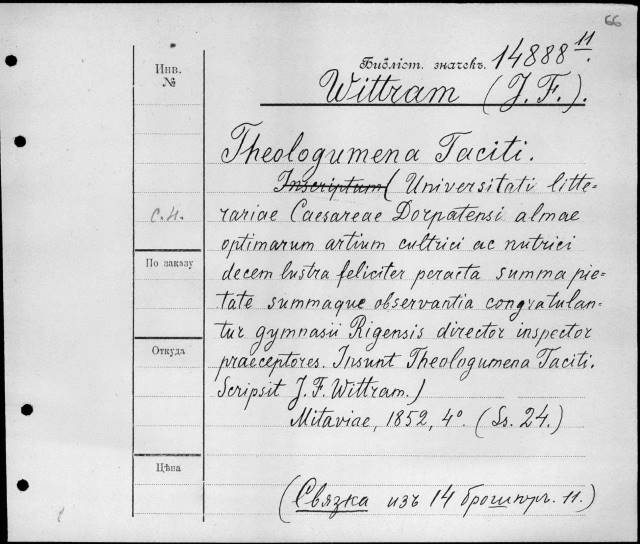 66
Инв. №
Библіот. значекъ. 14888 11.
Wittram (J. F.).
Theologumena Taciti.
Inscriptum (Universitati litte-
rariae Caesareae Dorpatensi almae
optimarum artium cultrici ac nutrici
decem lustra feliciter peracta summa pie-
tate summaque observantia congratulan-
tur gymnasii Rigensis director inspector
praeceptores. Insunt Theologumena Taciti.
Scripsit J. F. Wittram.)
Mitaviae, 1852, 4°. (Ss. 24.)
(Связка изъ 14 брошюръ. 11.)
с.н.
По заказу
Откуда
Цѣна